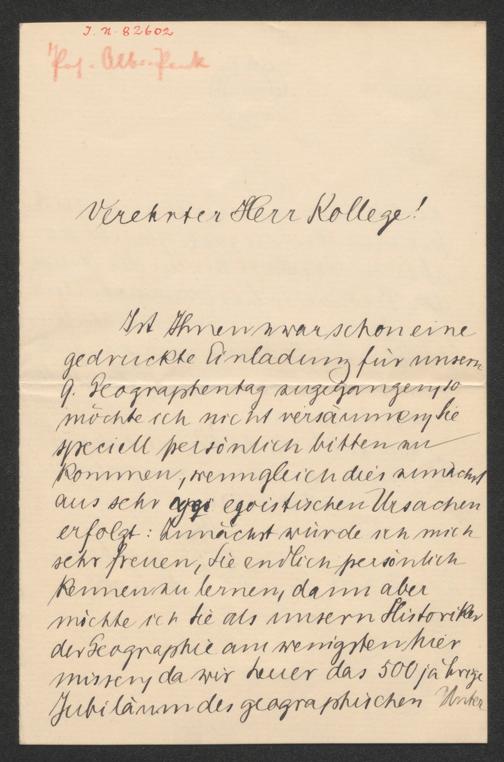 J. N. 82602
Prof. Albr. Penk
Verehrter Herr Kollege!
Ist Ihnen zwar schon eine
gedruckte Einladung für unsern
9. Geographentag zugegangen, so
möchte ich nicht versäumen, Sie
speciell persönlich bitten zu
kommen, wenngleich dies zunächst
aus sehr egoistischen Ursachen
erfolgt: Zunächst würde ich mich
sehr freuen, Sie endlich persönlich
kennen zu lernen, dann aber
möchte ich Sie als unsern Historiker
der Geographie am wenigsten hier
missen, da wir heuer das 500 jährige
Jubiläum des geographischen Unter